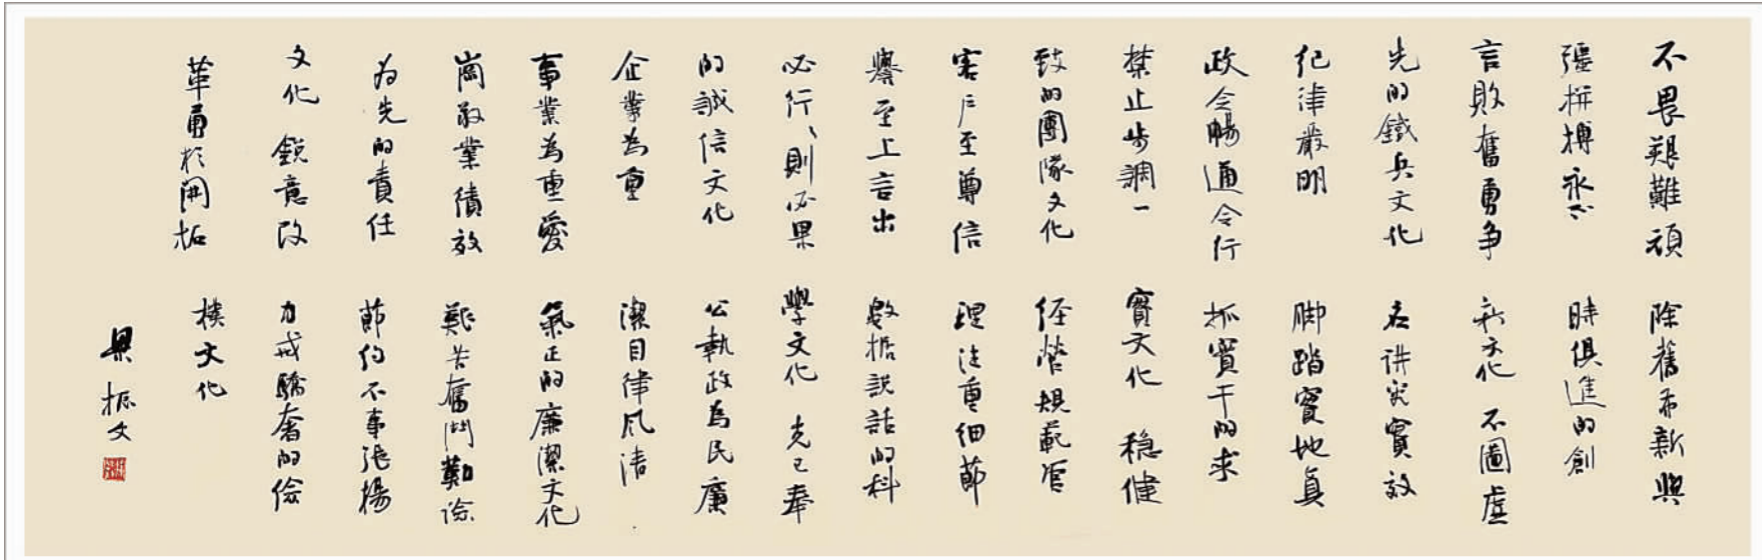 不畏艱難頑
彊拼搏永不
言敗奮勇争
先的鐵兵文化
紀律嚴明
政令暢通令行
禁止步調一
致的團隊文化
客戶至尊信
譽至上言出
必行、則必果
的誠信文化
企業為重
事業為重愛
崗敬業績效
为先的責任
文化 銳意改
革勇於開拓
除舊布新與
時俱進的創
新文化 不圖虛
名讲究實效
脚踏實地真
抓實干的求
實文化 穩健
经營規範管
理注重细節
數据説話的科
學文化 克己奉
公執政為民廉
潔自律风清
氣正的廉潔文化
艱苦奮鬥勤儉
節约不事張揚
力戒驕奢的儉
樸文化
梁振文